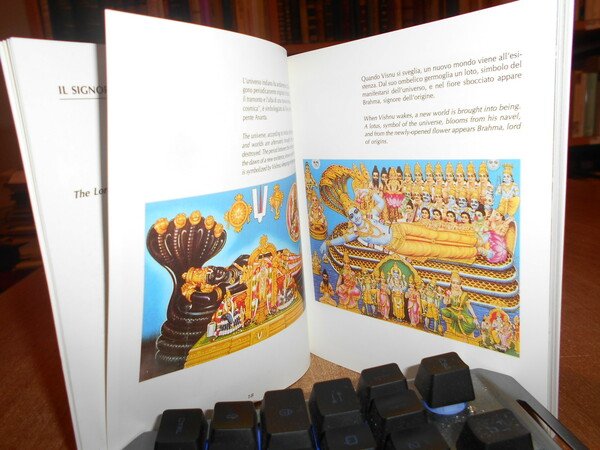 IL SIGNOR
The Lor
L'universo indiano ha
gono periodicamente
il tramonto e l'alba di una
cosmica", è simboleggiato
pente Ananta.
The universe, according to
and worlds are alternately
destroyed. The period between
the dawn of a new existence,
is symbolized by Vishnu sleeping
58
Quando Visnu si sveglia, un nuovo mondo viene all'esi-
stenza. Dal suo ombelico germoglia un loto, simbolo del
manifestarsi dell'universo, e nel fiore sbocciato appare
Brahma, signore dell'origine.
When Vishnu wakes, a new world is brought into being.
A lotus, symbol of the universe, blooms from his navel,
and from the newly-opened flower appears Brahma, lord
of origins.